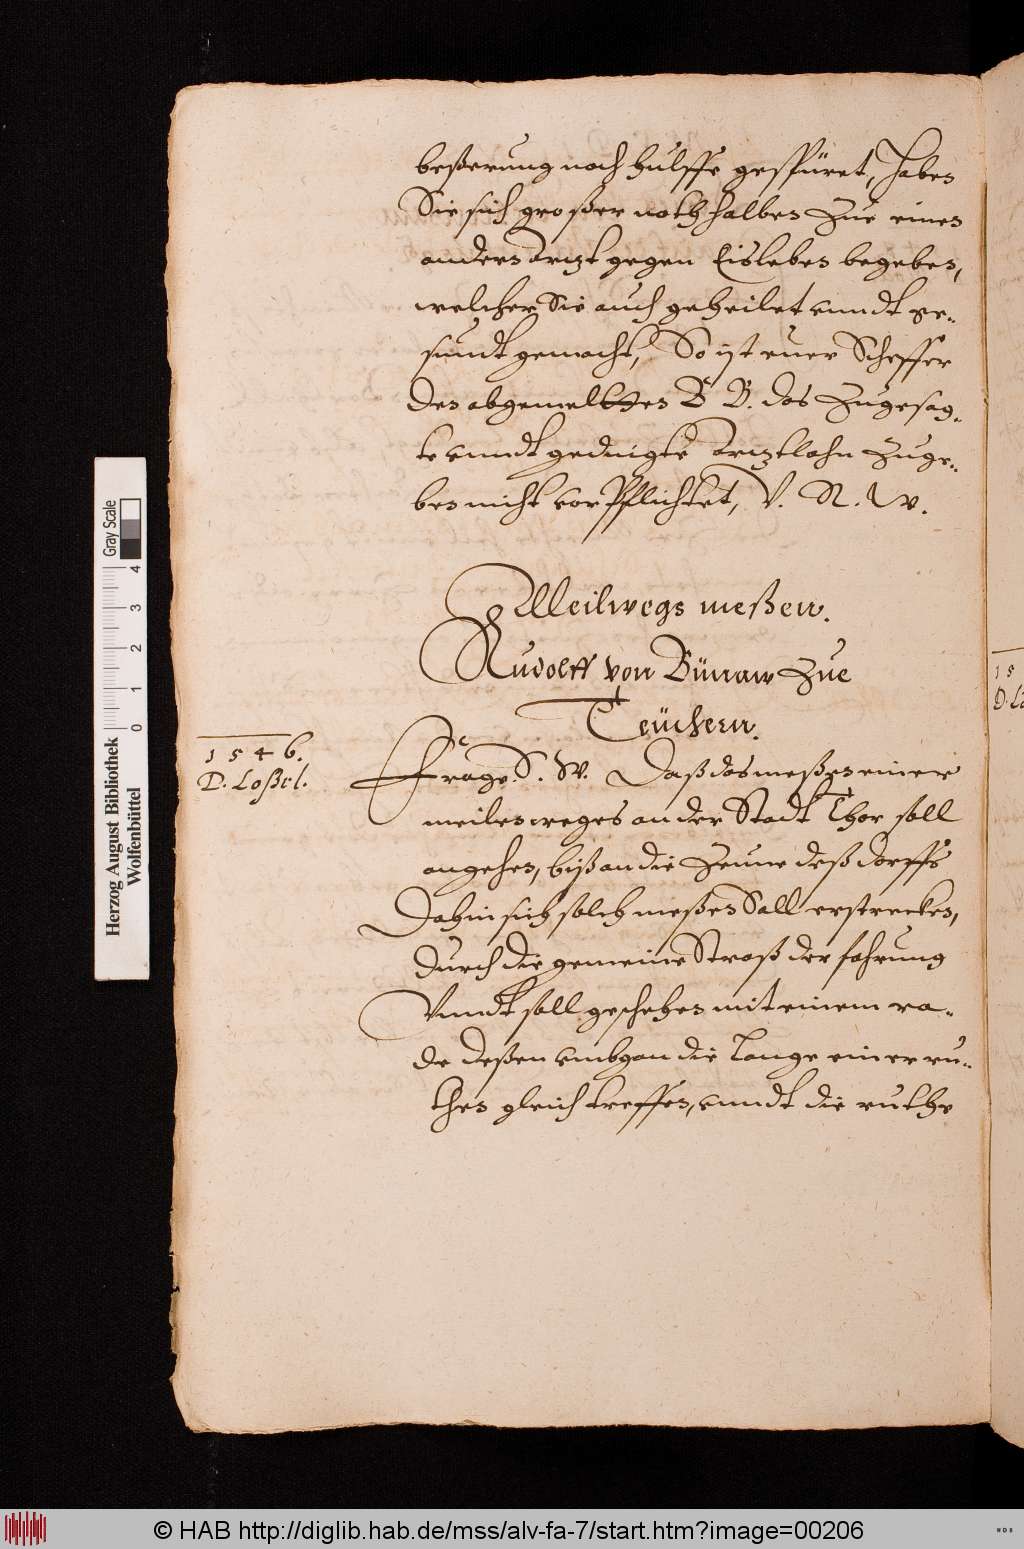 beßerung noch hulffe gespüret, Haben
Sie sich großer noth halben Zue einen
andern Arzt gegen Eisleben begeben,
welcher Sie auch geheilet vnndt ge-
sundt gemacht, So ist euer Scheffer
den abgemeltten B B. das Zugesag-
te vnndt gedingte Arztlohn Zuge-
ben nicht vorPflichtet, V. R. W.
Meilwegs meßen.
Rudolff von Bünaw Zue
Teüchern.
1546.
D. Loßel.
Frage. S. W. Daß das meßen einer
meilen weges an der Stadt Thor soll
angehen, biß an die Zeune deß dorffs
Dahin sich solch meßen Sall erstrecken,
durch die gemeine Straß der fahrung
Vnndt soll geschehen mit einem ra-
de deßen vmbgan die Lange einer ru-
then gleich treffen, vnndt die ruthe
15
Herzog August Bibliothek
Wolfenbüttel
0 1 2 3 4
Gray Scale
© HAB http://diglib.hab.de/mss/alv-fa-7/start.htm?image=00206